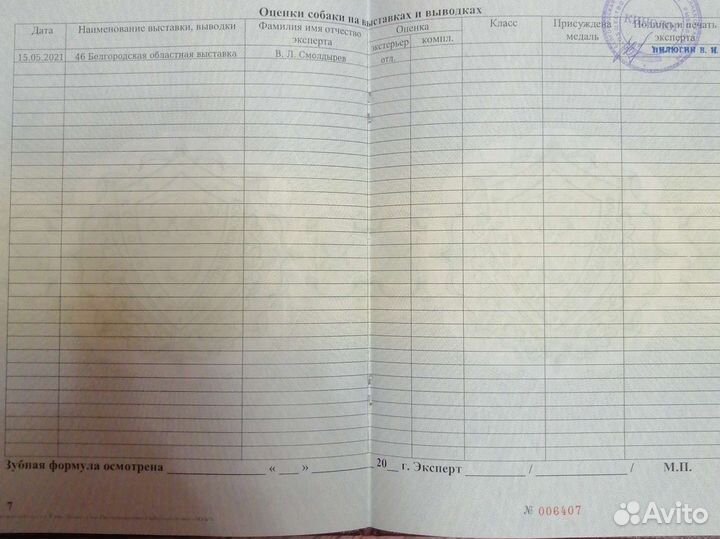 Оценки собаки на выставках и выводках
Дата Наименование выставки, выводки Фамилия имя отчество эксперта Оценка экстерьер компл. Класс Присуждена медаль Подпись и печать эксперта
15.05.2021 46 Белгородская областная выставка В. Л. Смолдырев отл.
ПИЛЮГИН В. И.
Зубная формула осмотрена « » 20 г. Эксперт / / М.П.
7
№ 006407
Avito